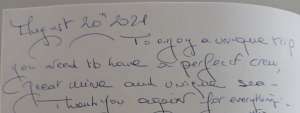 August 20th 2021
To enjoy a unique trip
you need to have a perfect crew,
great wine and unique sea.
Thank you again for everything.